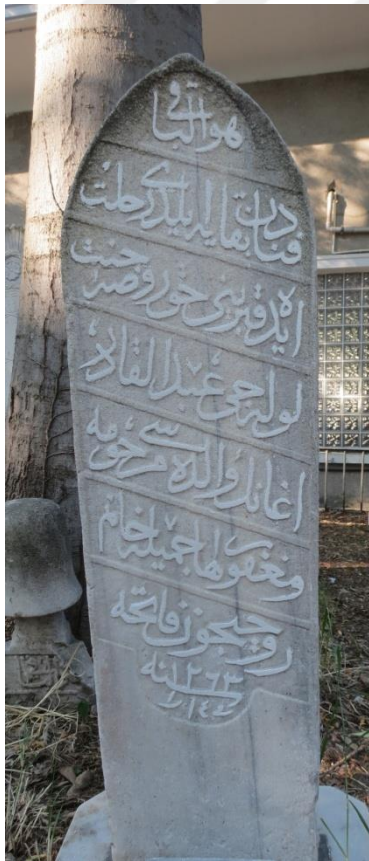 هو الباقی
فنادن بقایه ایلدی رحلت
ایده قبرینی حق روضهٔ جنت
لوله جی عبد القادر
اغانك والده سی مرحومه
ومغفور لها جمیله خانم
روحیچون فاتحه
سنه ١٢٦٣